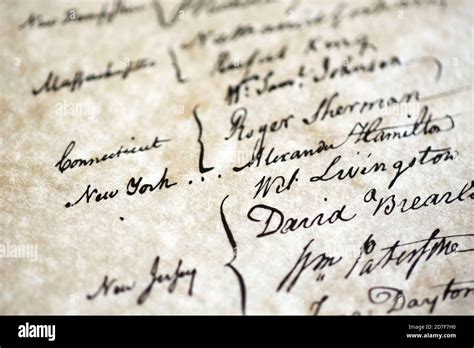 New Hampshire {
Massachusetts { Nathaniel Gorham
Rufus King
Connecticut { Wm. Saml. Johnson
Roger Sherman
New York . . . Alexander Hamilton
New Jersey { Wil: Livingston
David Brearl
Wm Paterson
Dayton
alamy
alamy
Image ID: 2D7F7H0
www.alamy.com